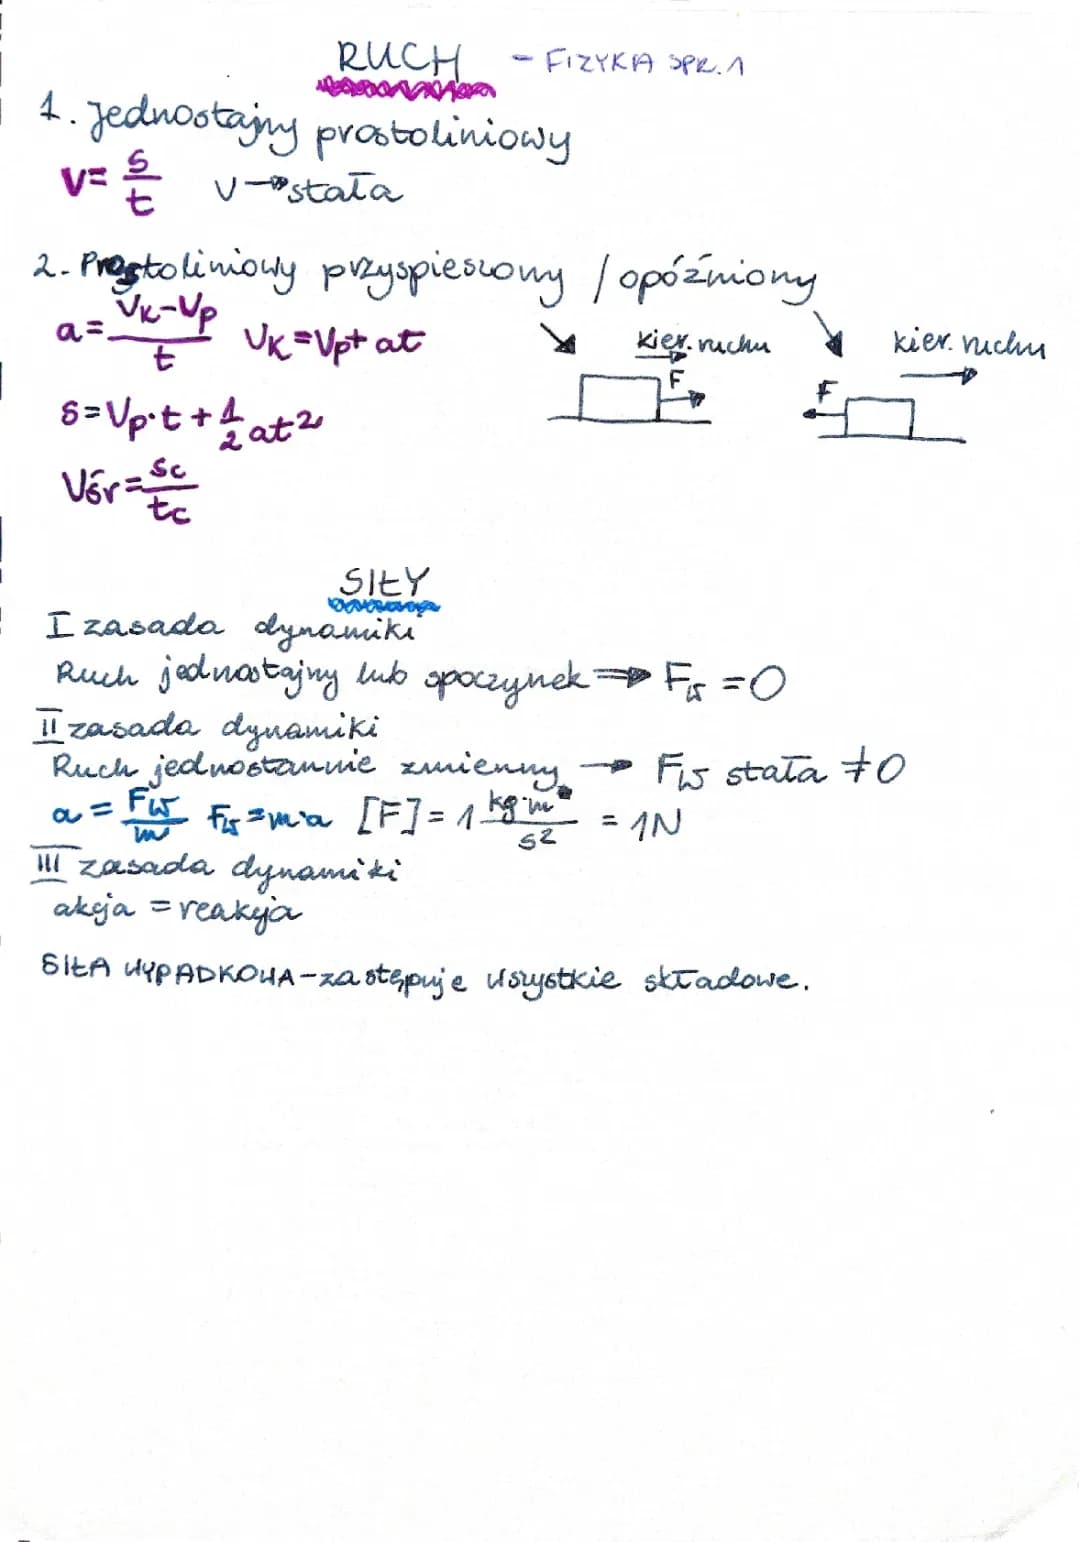 RUCH - FIZYKA SPR. 1
1. Jednostajny prostoliniowy
v = s/t v → stała
2. Prostoliniowy przyspieszony / opóźniony
a = Vk-Vp/t Vk = Vp + at
kier. ruchu kier. ruchu
F F
s = Vp·t + 1/2 at²
Vśr = sc/tc
SIŁY
I zasada dynamiki
Ruch jednostajny lub spoczynek ⇒ Fw = 0
II zasada dynamiki
Ruch jednostannie zmienny → Fw stała ≠ 0
a = Fw/m Fw = m·a [F] = 1 kg·m/s² = 1N
III zasada dynamiki
akcja = reakcja
SIŁA WYPADKOWA - zastępuje wszystkie składowe.